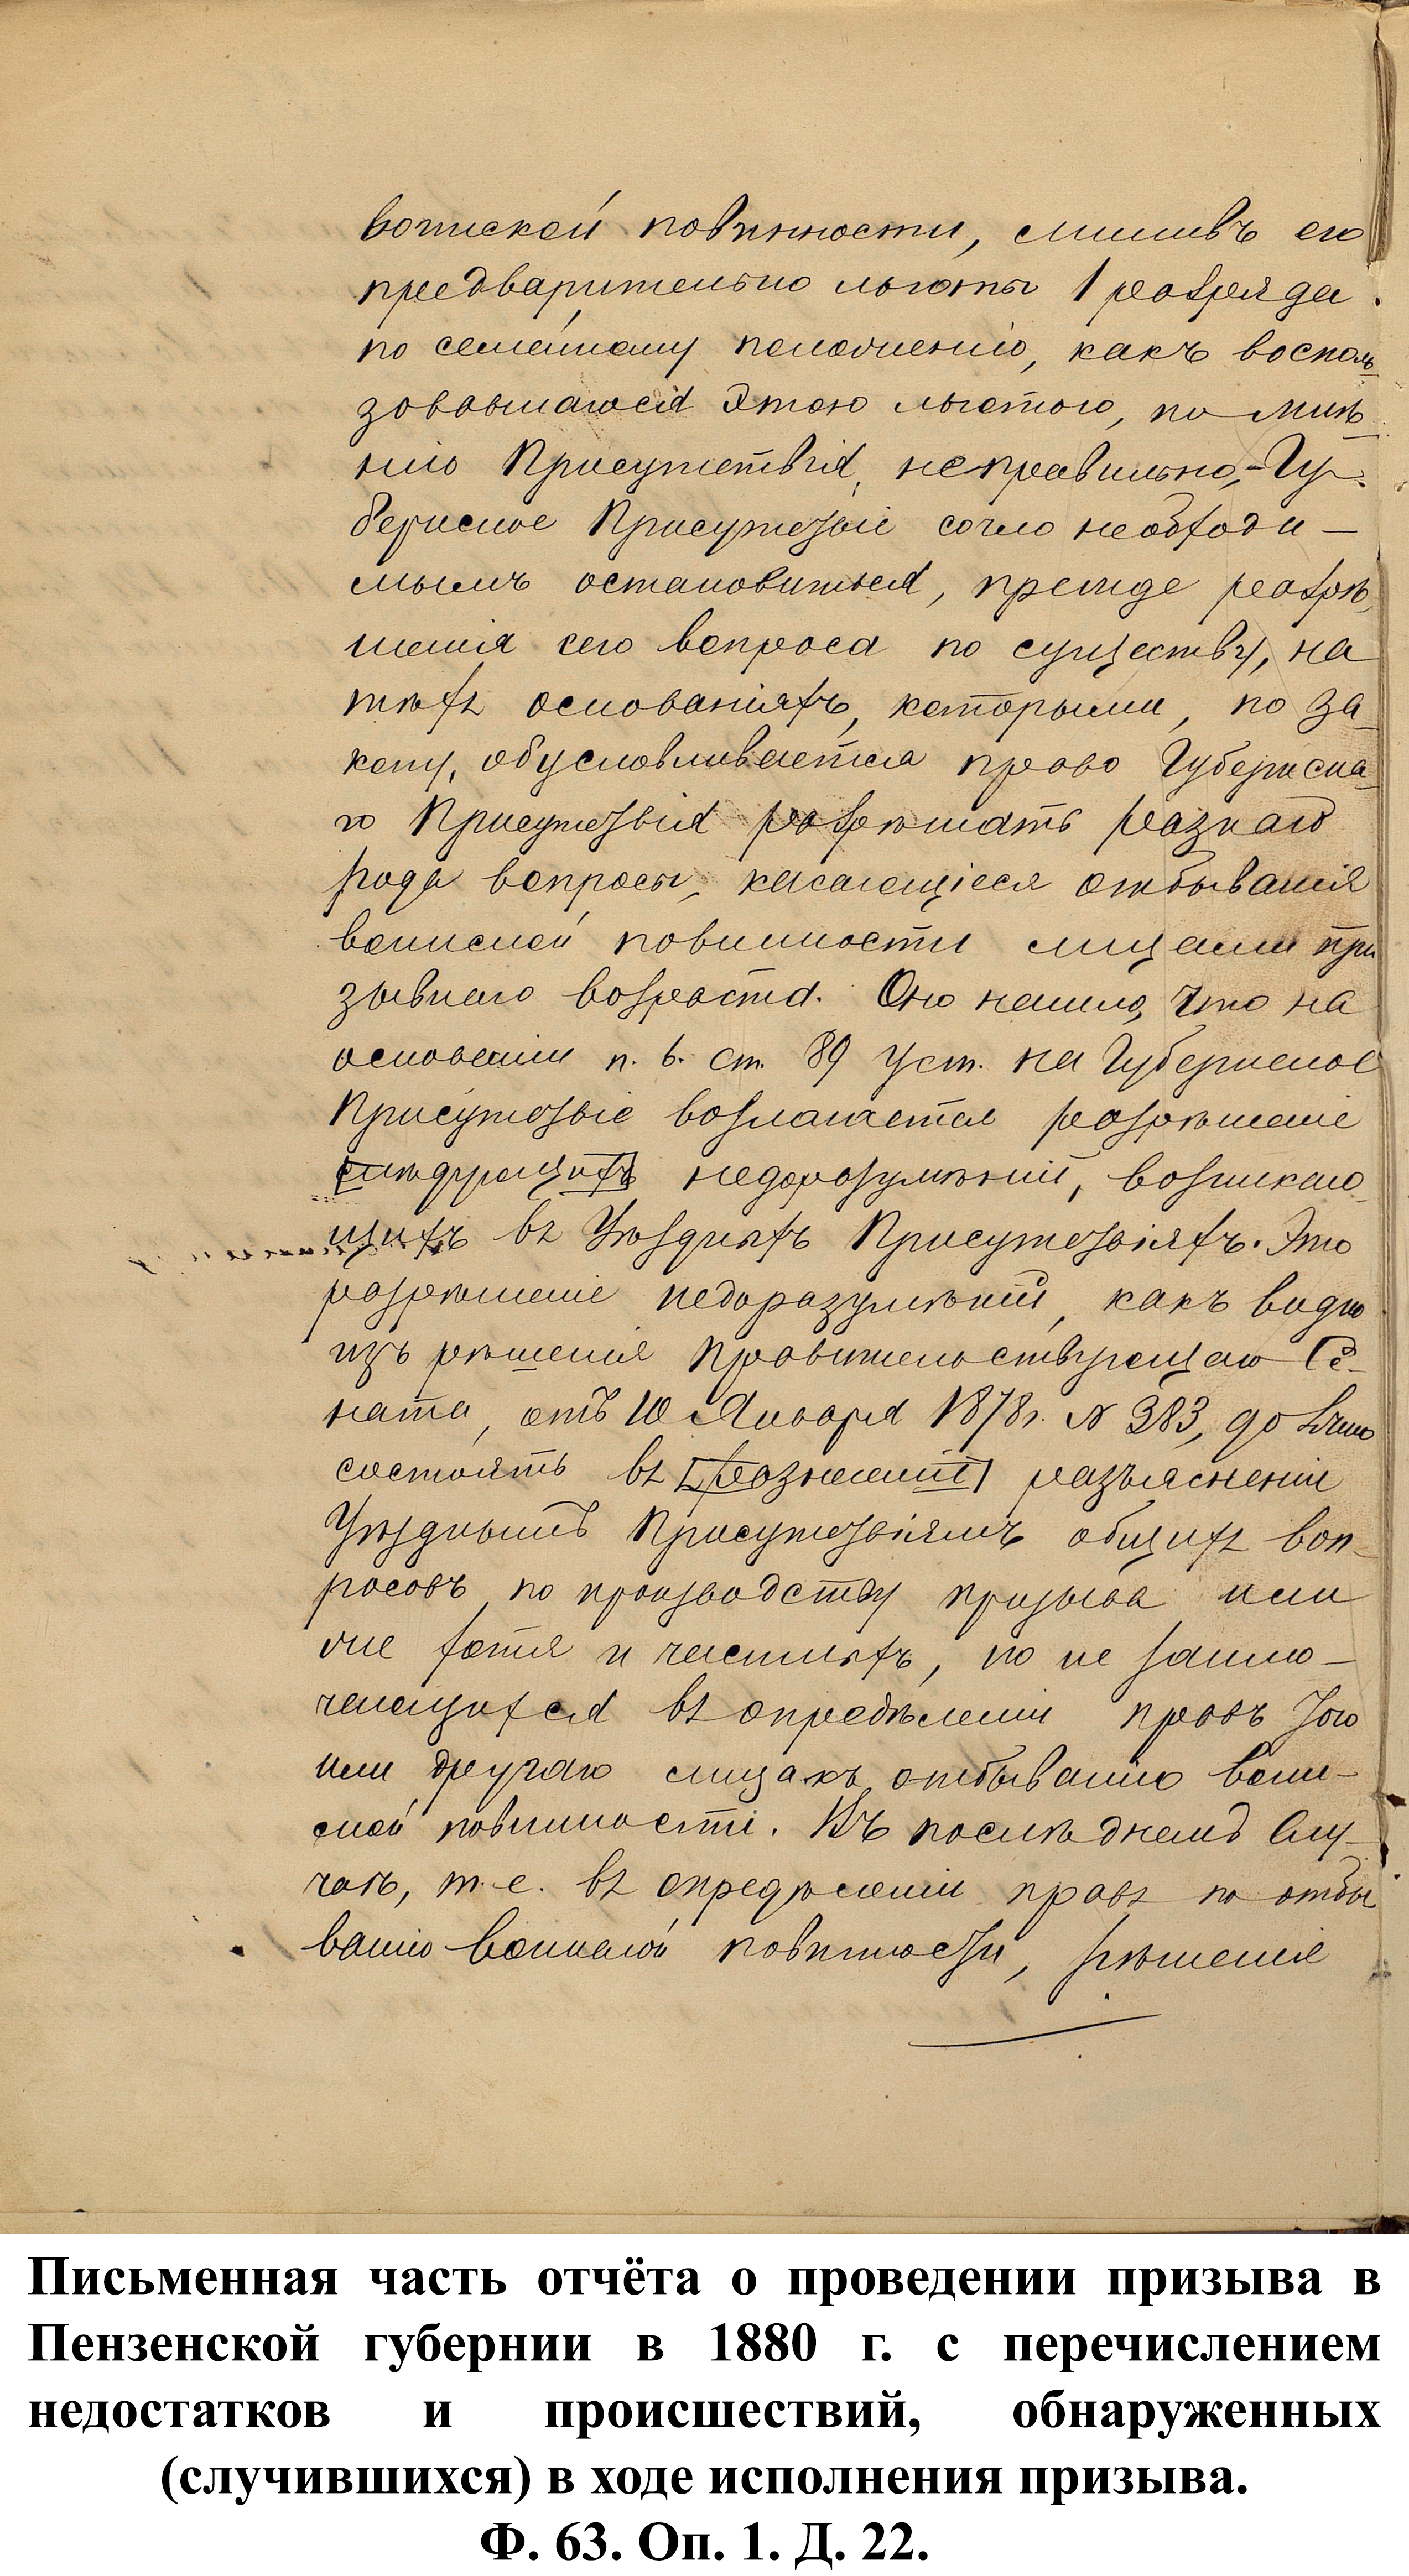 воинской повинности, лишивъ его
предварительно льготы 1 разряда
по семейному положенію, какъ восполь
зовавшагося этою льготою, по мнѣ
нію Присутствія, неправильно,- Гу-
бернское Присутствіе сочло необходи-
мымъ остановиться, прежде разрѣ
шенія сего вопроса по существу, на
тѣхъ основаніяхъ, которыми, по за
кону, обусловливается право Губернска
го Присутствія разрѣшать разнаго
рода вопросы, касающіеся отбыванія
воинской повинности лицами при
зывнаго возраста. Оно нашло, что на
основаніи п. 6. ст. 89 Уст. на Губернское
Присутствіе возлагается разрѣшеніе
слѣдующихъ недоразумѣній, возникаю
щихъ въ Уѣздныхъ Присутствіяхъ. Это
разрѣшеніе недоразумѣній, какъ видно
изъ рѣшенія Правительствующаго Се-
ната, отъ 10 Января 1878 г. № 383, должно
состоять въ разъясненіи
Уѣзднымъ Присутствіямъ общихъ воп-
росовъ по производству призыва или
же хотя и частныхъ, но не заклю-
чающихся въ опредѣленіи правъ того
или другаго лица къ отбыванію воин-
ской повинности. Въ послѣднемъ слу-
чаѣ, т.е. въ опредѣленіи правъ по отбы
ванію воинской повинности, рѣшенія
Письменная часть отчёта о проведении призыва в
Пензенской губернии в 1880 г. с перечислением
недостатков и происшествий, обнаруженных
(случившихся) в ходе исполнения призыва.
Ф. 63. Оп. 1. Д. 22.